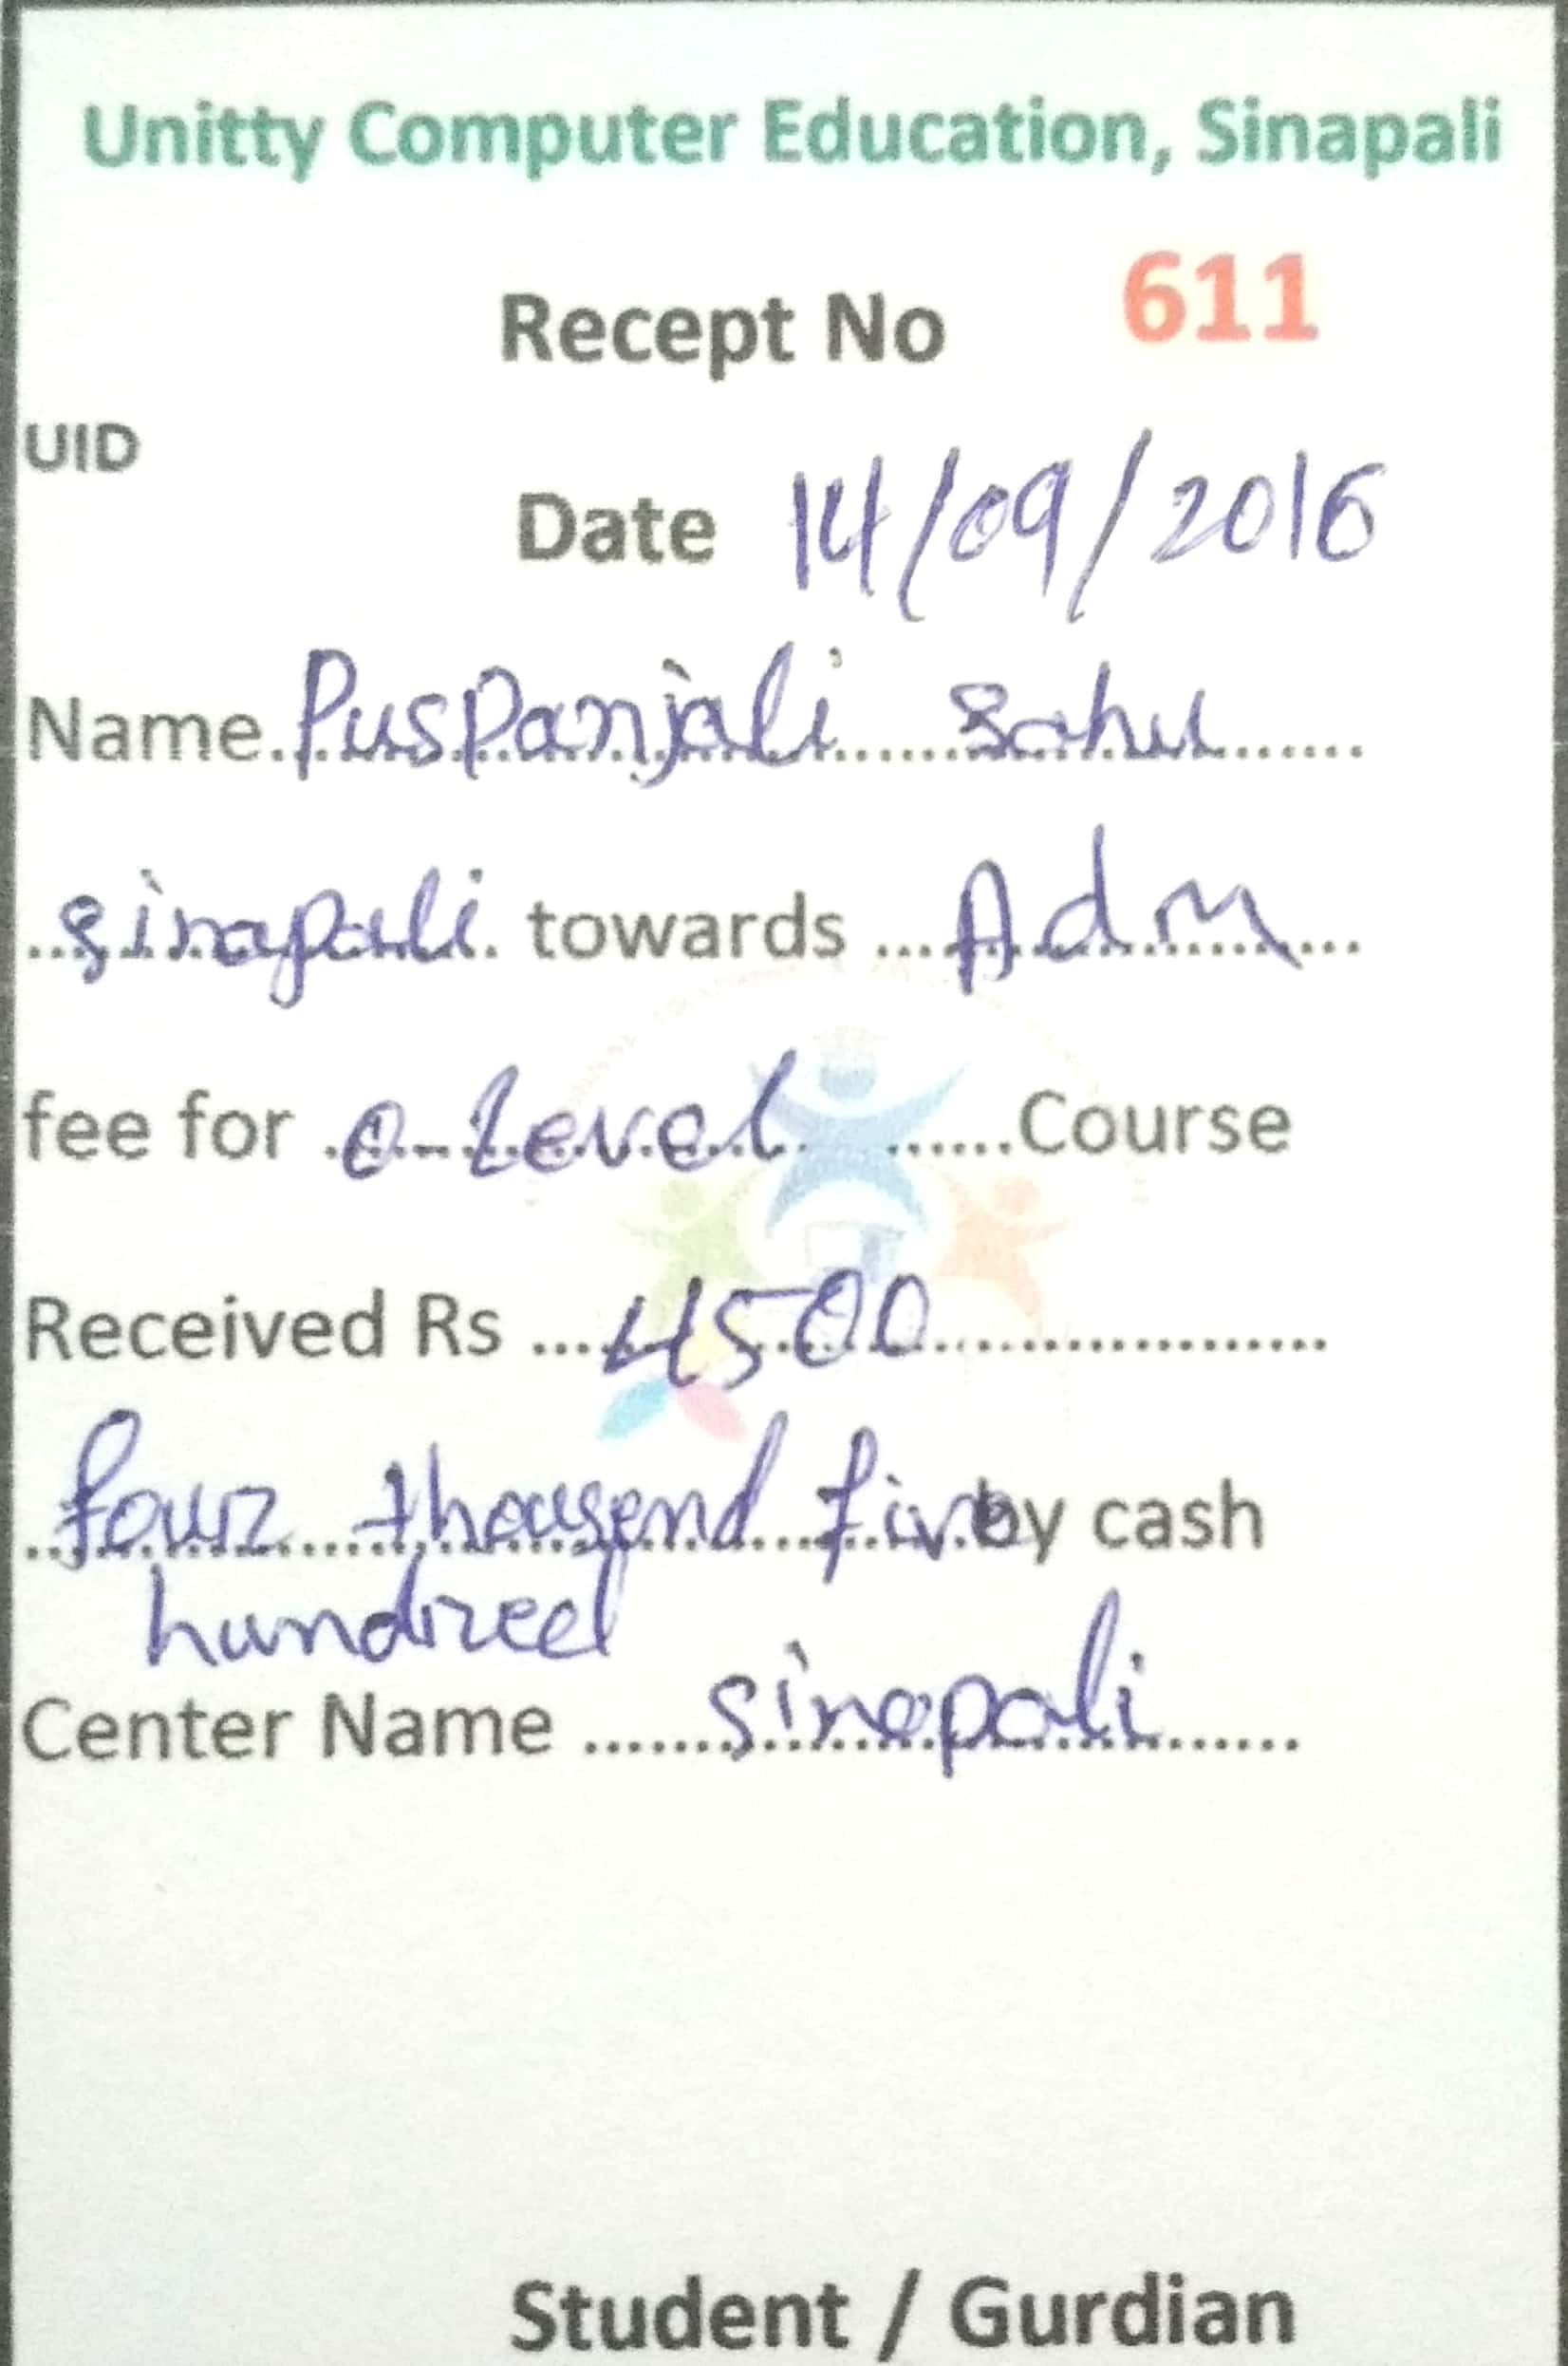 Unitty Computer Education, Sinapali
Recept No 611
UID
Date 14/09/2016
Name Puspanjali Sahu
sinapali towards Adm
fee for o-Level Course
Received Rs 4500
four thousend five by cash
hundred
Center Name Sinapali
Student / Gurdian